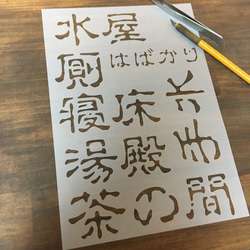 水屋
厠はばかり
寝床
湯殿
茶の間